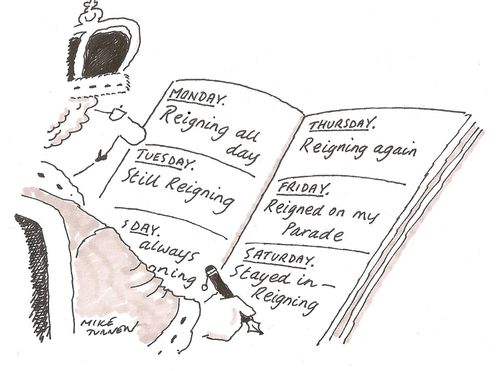 MONDAY.
Reigning all
day
TUESDAY.
Still Reigning
SDAY.
always
ning
THURSDAY.
Reigning again
FRIDAY.
Reigned on my
Parade
SATURDAY.
Stayed in —
Reigning
MIKE
TURNER